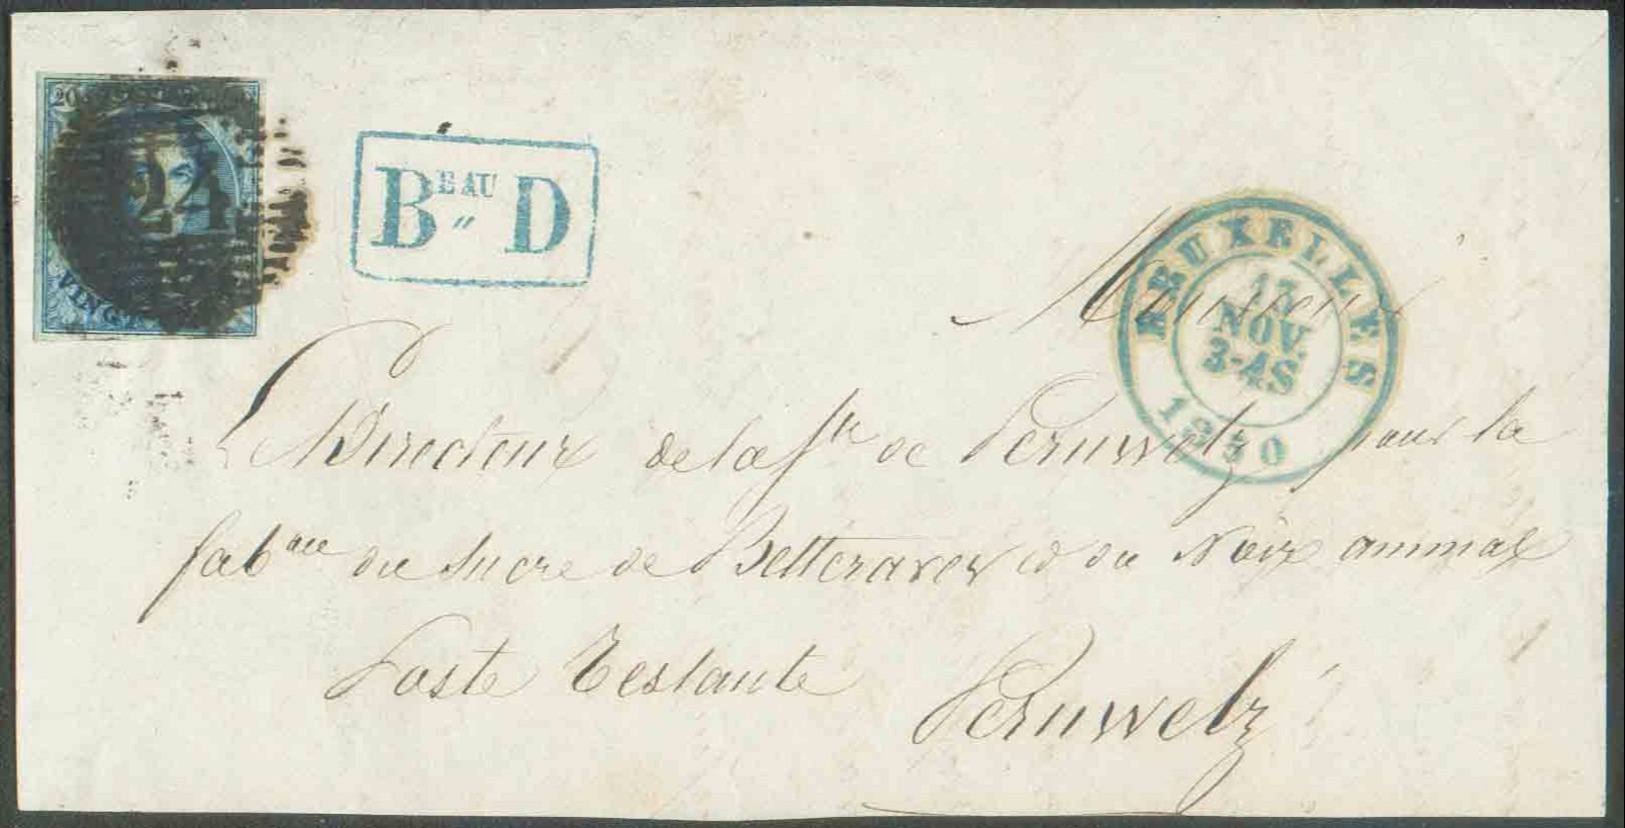 20
24
VINGT
BEAU „ D
BRUXELLES
13
NOV.
3-4S
1850
Monsieur
Le Directeur de la Sté de Peruwelz pour la
fabque du Sucre de Betteraves & du Noir animal
Poste Restante
Peruwelz